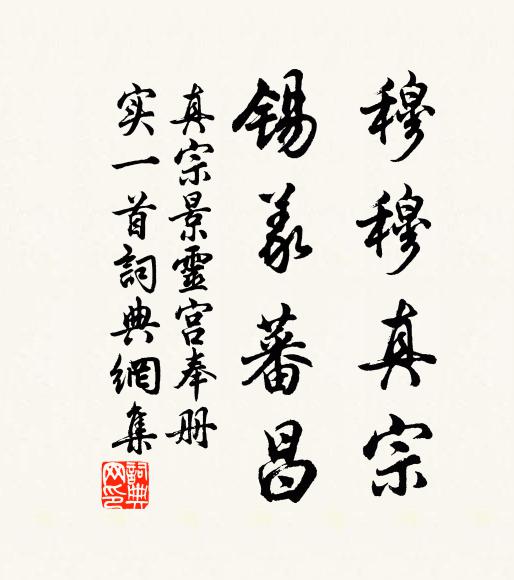 穆穆真宗
锡羕蕃昌
真宗景靈宫奉册
实一首詞典網集
詞典
网印